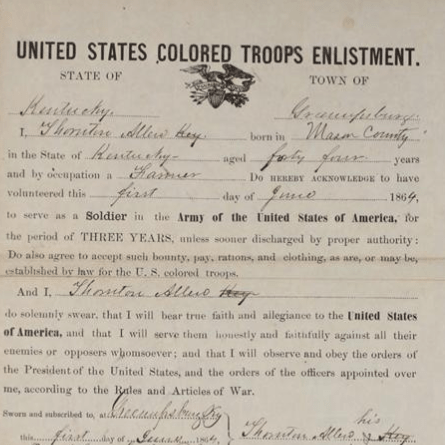 UNITED STATES COLORED TROOPS ENLISTMENT.
STATE OF TOWN OF
Kentucky. Greensburg.
I, Thornton Allen Key. born in Mason County
in the State of Kentucky aged forty four years
and by occupation a Farmer Do HEREBY ACKNOWLEDGE to have
volunteered this first day of June 1864,
to serve as a Soldier in the Army of the United States of America, for
the period of THREE YEARS, unless sooner discharged by proper authority:
Do also agree to accept such bounty, pay, rations, and clothing, as are, or may be,
established by law for the U. S. colored troops.
And I, Thornton Allen Key
do solemnly swear, that I will bear true faith and allegiance to the United States
of America, and that I will serve them honestly and faithfully against all their
enemies or opposers whomsoever; and that I will observe and obey the orders of
the President of the United States, and the orders of the officers appointed over
me, according to the Rules and Articles of War.
Sworn and subscribed to, at Greensburg Ky his
this first day of June 1864, Thornton Allen Key